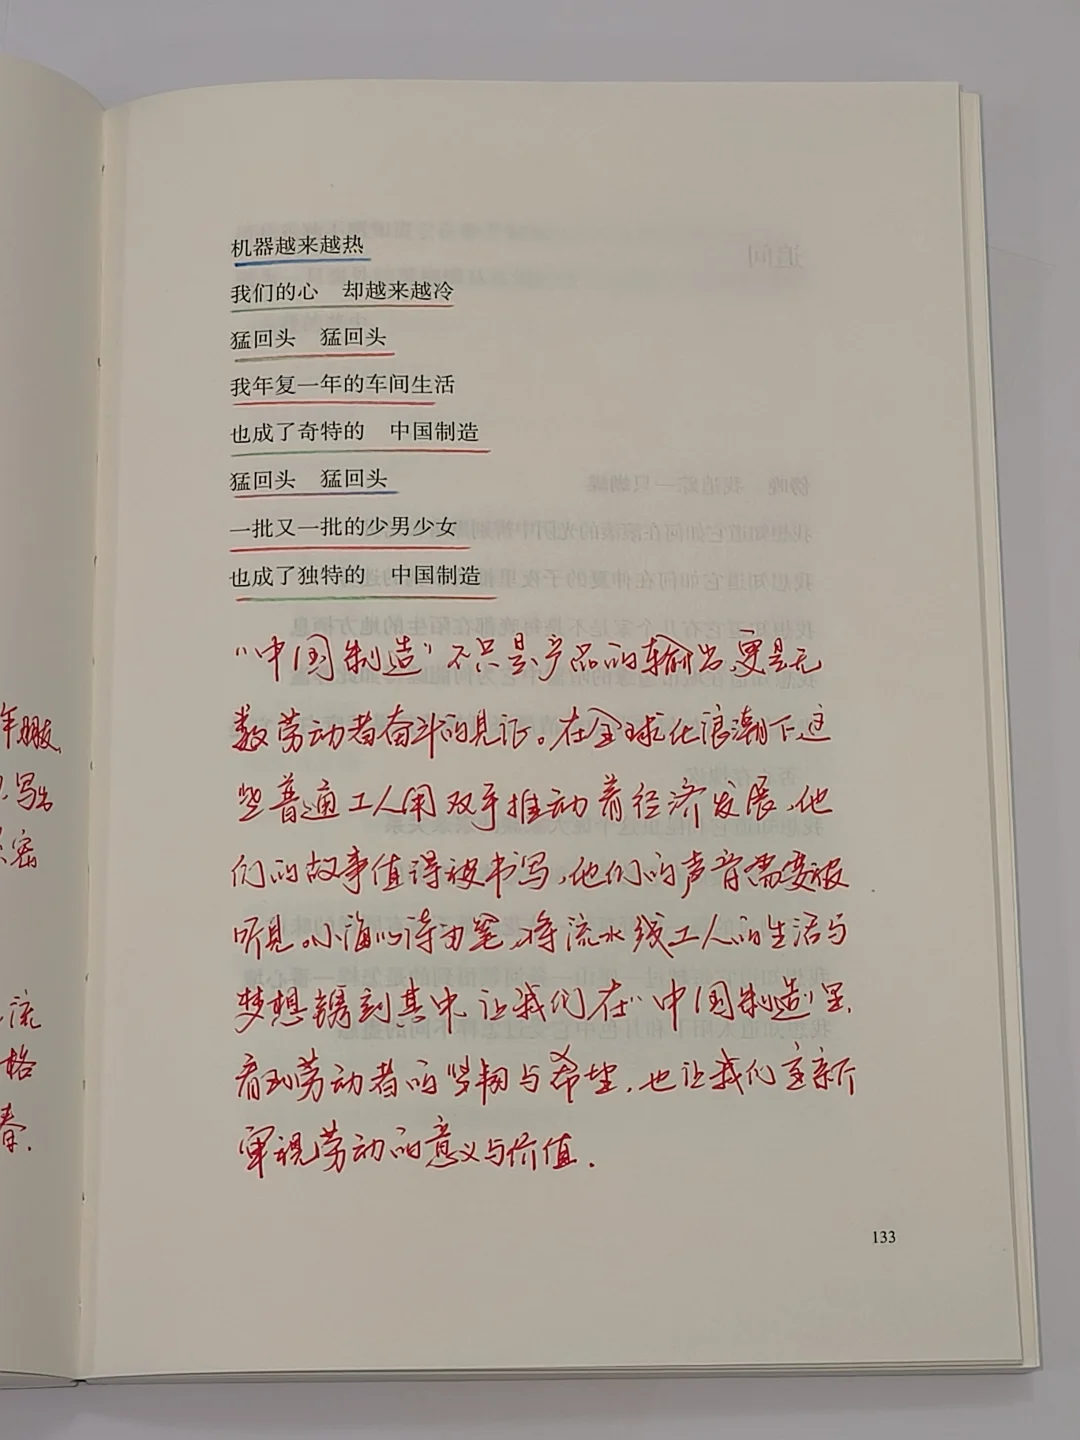 机器越来越热
我们的心　却越来越冷
猛回头　猛回头
我年复一年的车间生活
也成了奇特的　中国制造
猛回头　猛回头
一批又一批的少男少女
也成了独特的　中国制造
“中国制造”不只是产品的输出，更是无
数劳动者奋斗的见证。在全球化浪潮下这
些普通工人用双手推动着经济发展，他
们的故事值得被书写，他们的声音需要被
听见。小海以诗为笔，将流水线工人的生活与
梦想镌刻其中，让我们在“中国制造”里，
看到劳动者的坚韧与希望，也让我们重新
审视劳动的意义与价值.
写出
密
流
格
春.
133